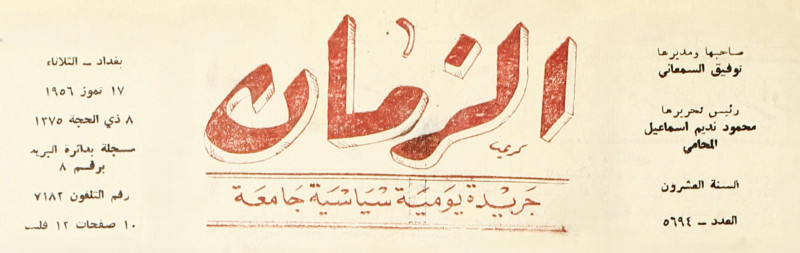 صاحبها ومديرها
توفيق السمعاني
رئيس تحريرها
محمود نديم اسماعيل
المحامي
السنة العشرون
العدد – ٥٦٩٤
الزمان
كريم
جريدة يومية سياسية جامعة
بغداد – الثلاثاء
١٧ تموز ١٩٥٦
٨ ذي الحجة ١٣٧٥
مسجلة بدائرة البريد
برقم ٨
رقم التلفون ٧١٨٢
١٠ صفحات ١٢ فلسا